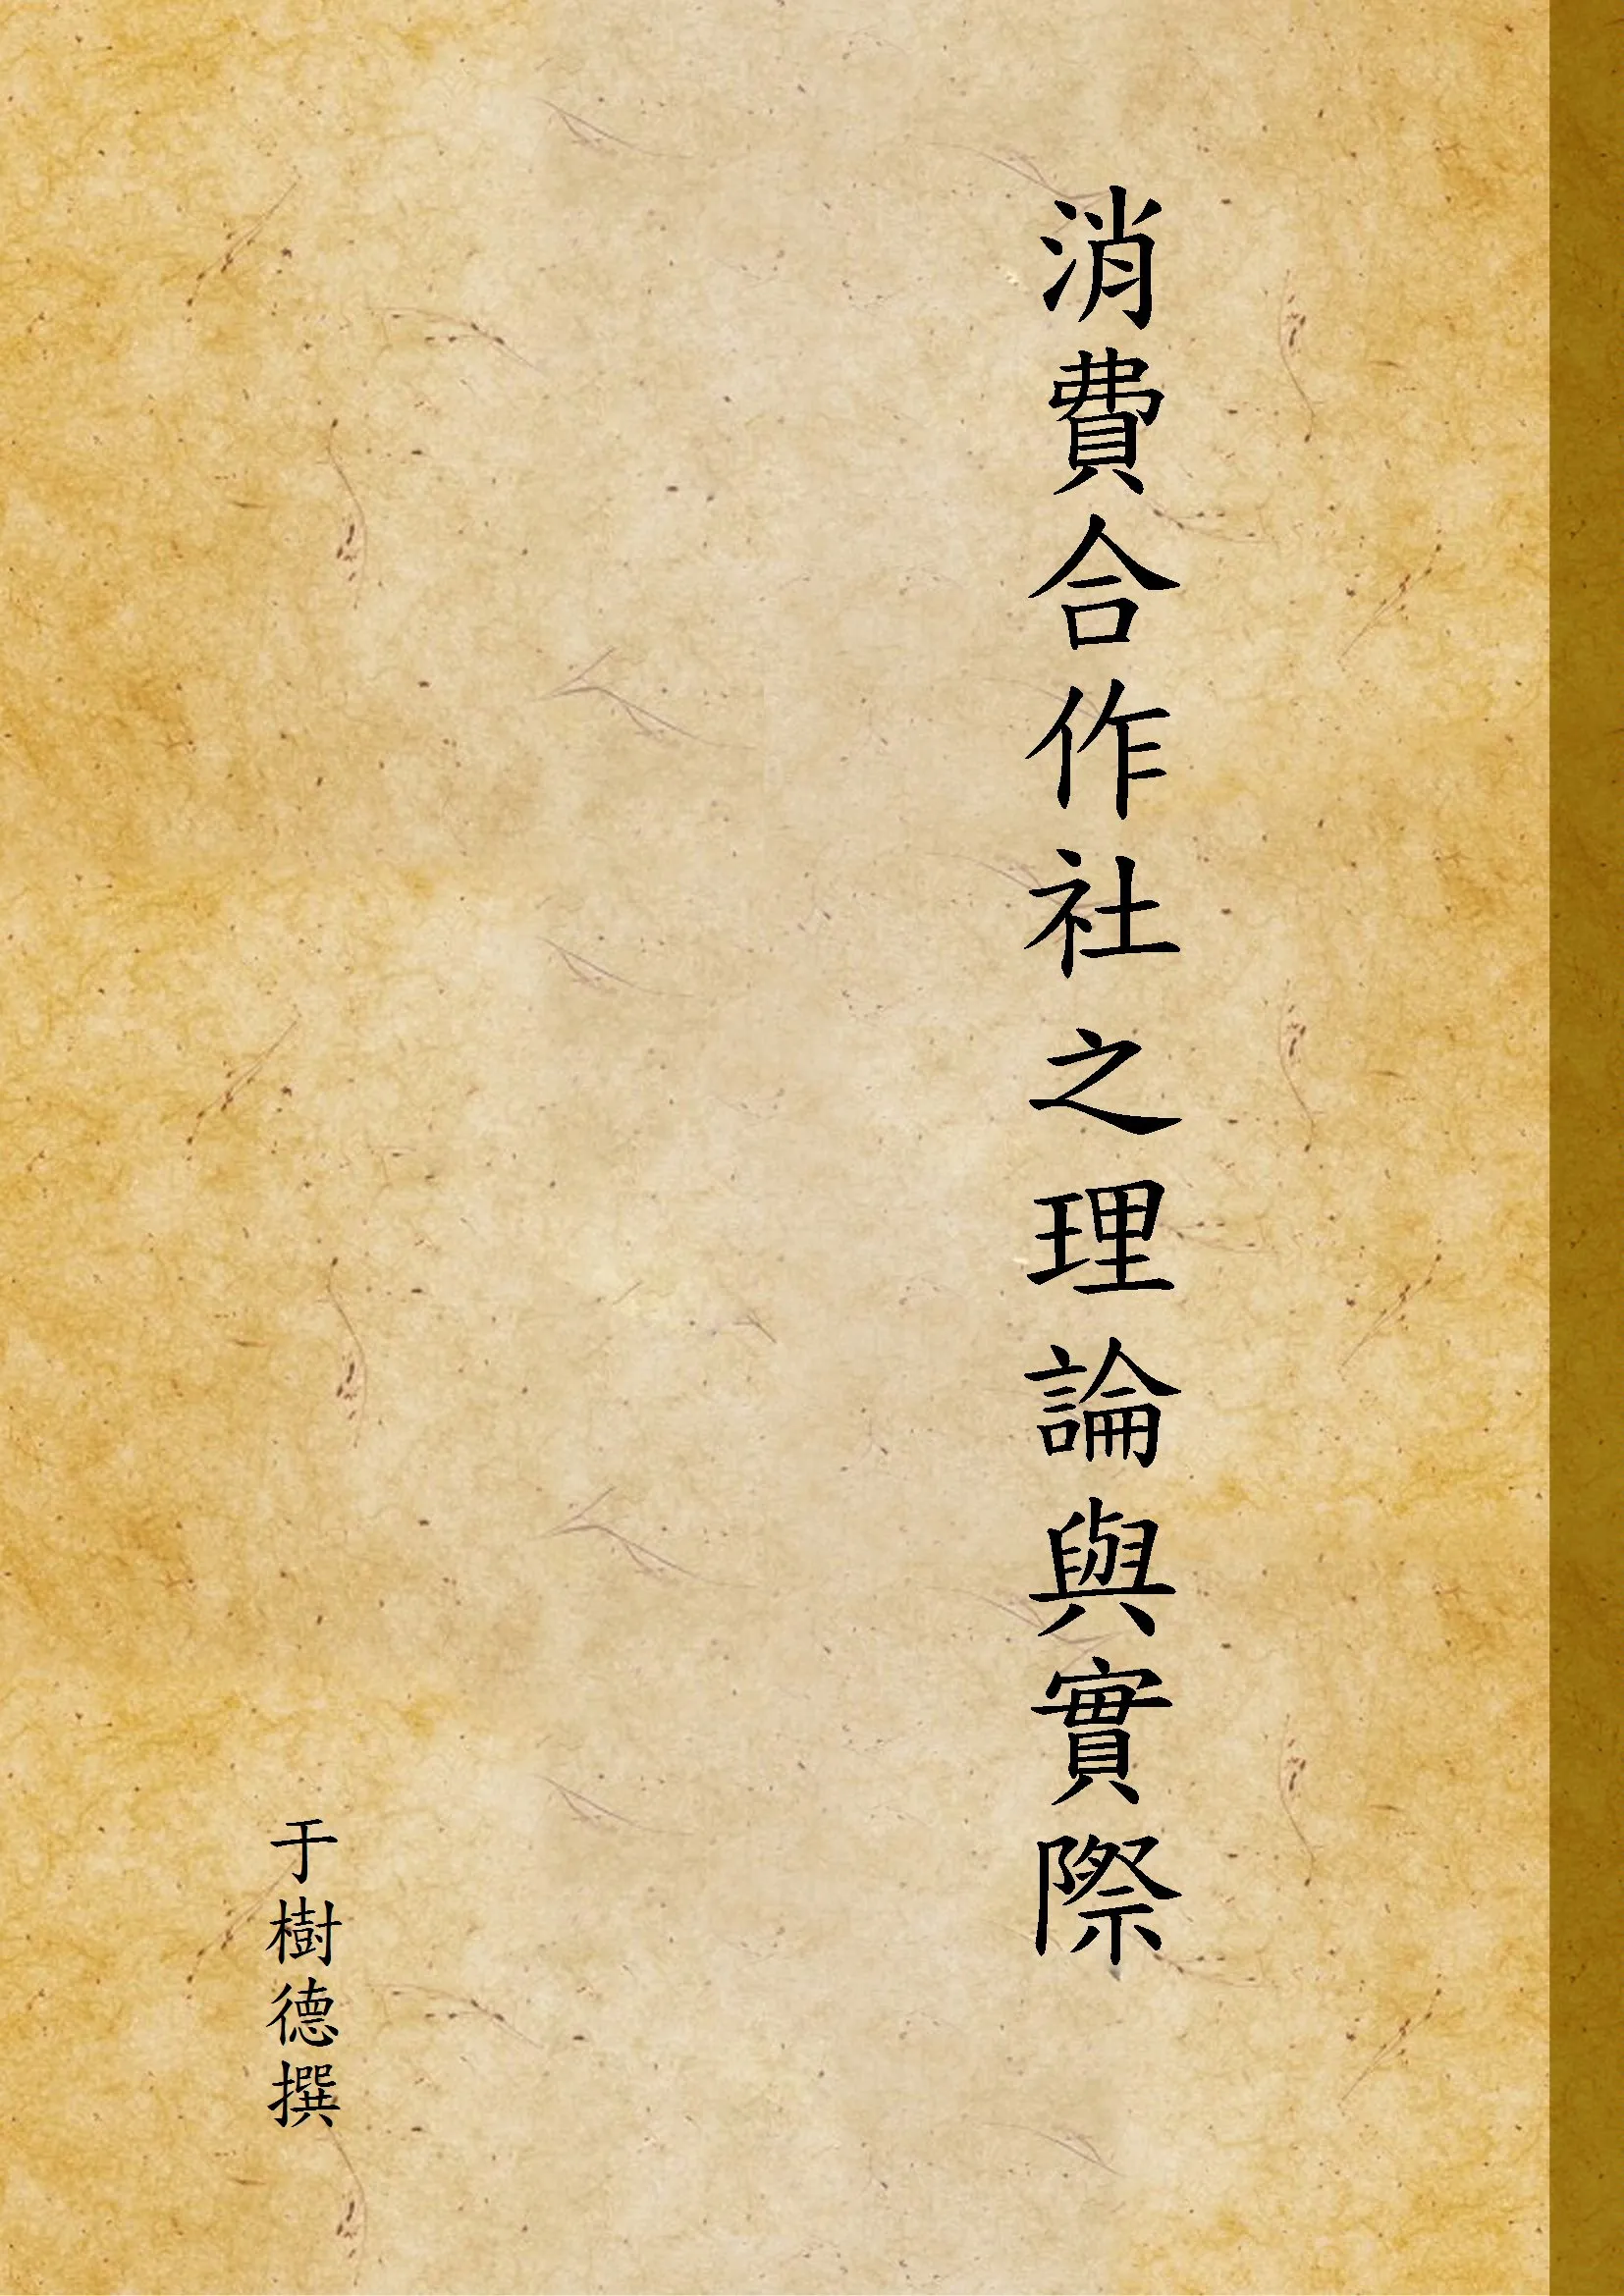 消費合作社之理論與實際
于樹德撰